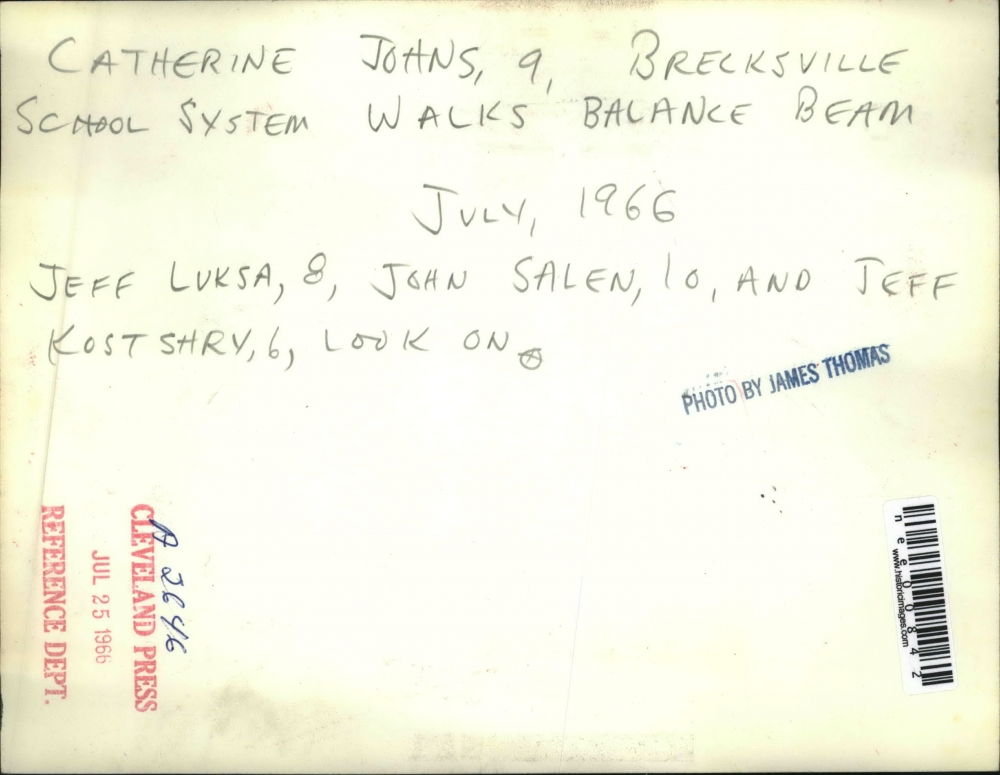 CATHERINE JOHNS, 9, BRECKSVILLE
SCHOOL SYSTEM WALKS BALANCE BEAM
JULY, 1966
JEFF LUKSA, 8, JOHN SALEN, 10, AND JEFF
KOSTSHRY, 6, LOOK ON
PHOTO BY JAMES THOMAS
A 2646
CLEVELAND PRESS
JUL 25 1966
REFERENCE DEPT.
www.historicimages.com
nee00842